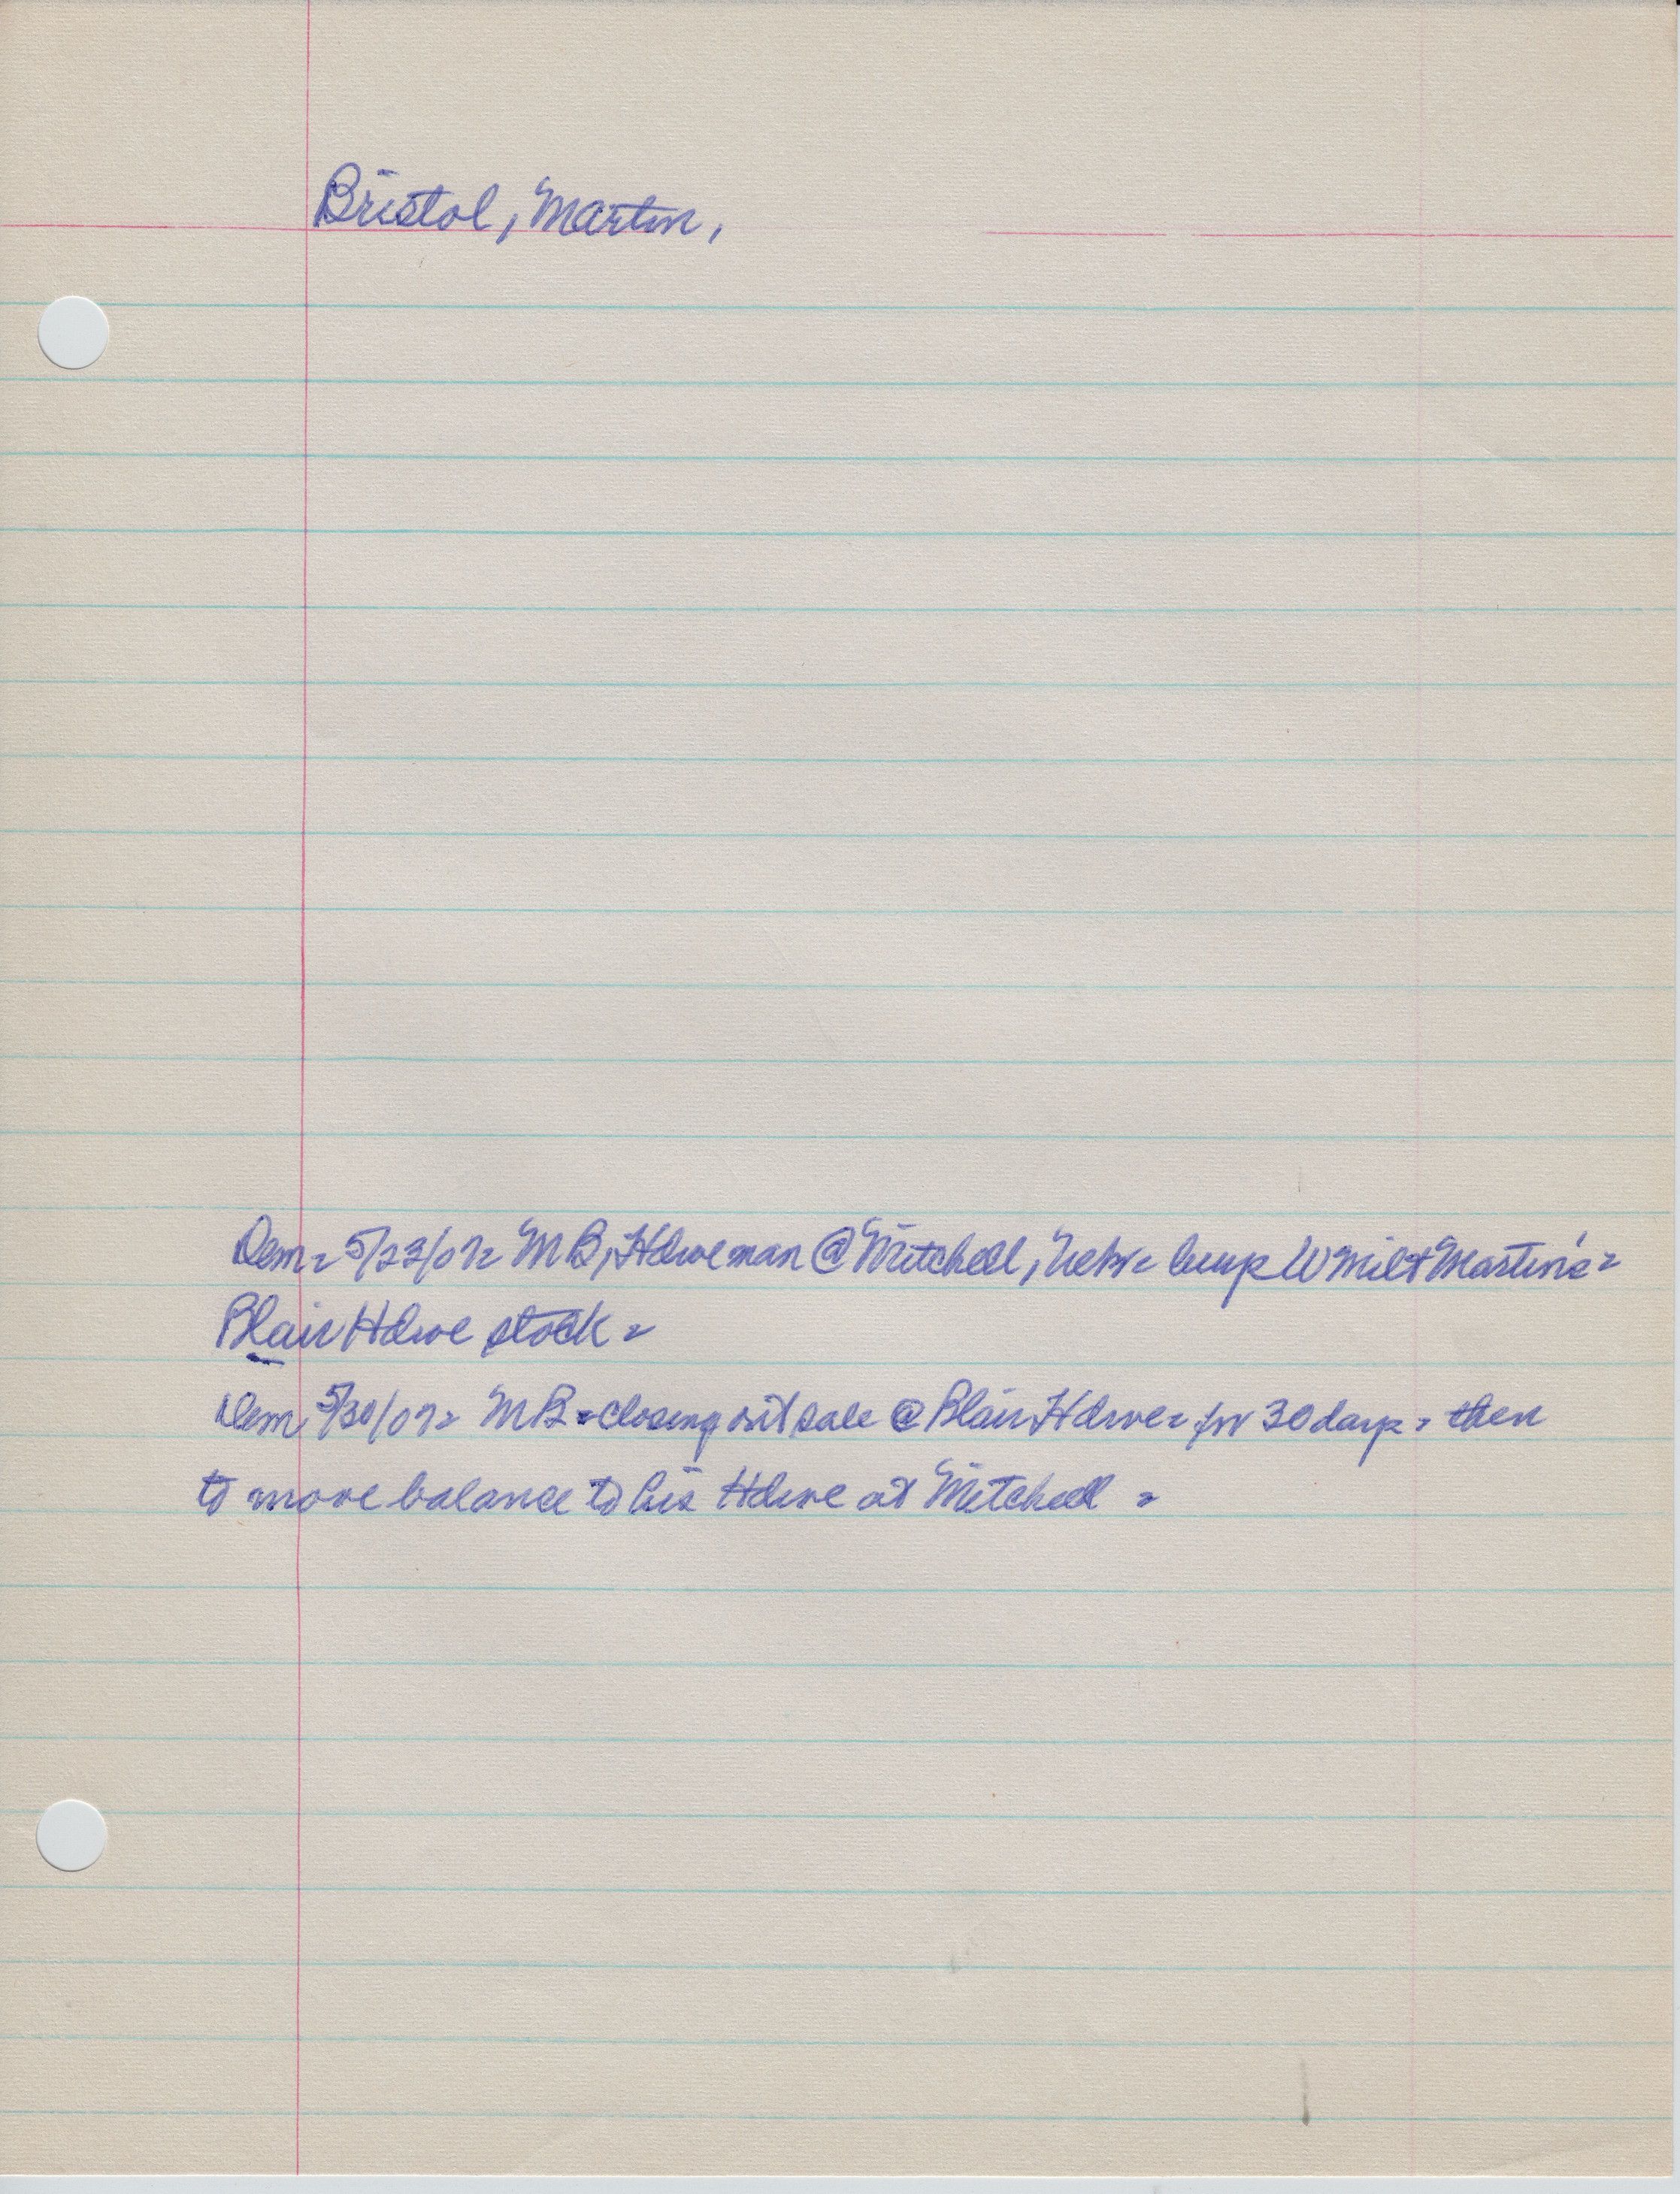 Bristol, Martin,
Dem = 5/23/07 = MB, Hdwe man @ Mitchell, Nebr = buys W Milt Martin's =
Blair Hdwe stock =
Dem 5/30/07 = MB = closing out sale @ Blair Hdwe = for 30 days = then
to move balance to his Hdwe at Mitchell =